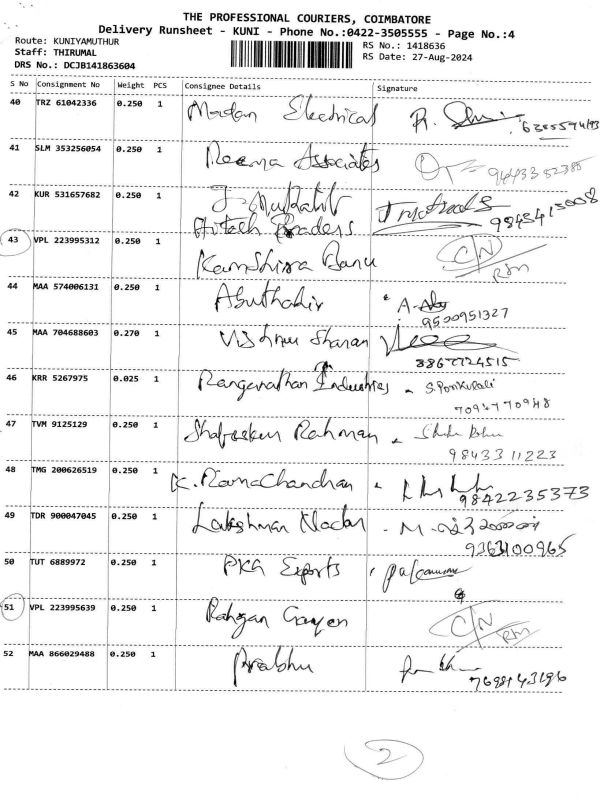 THE PROFESSIONAL COURIERS, COIMBATORE
Delivery Runsheet - KUNI - Phone No.:0422-3505555 - Page No.:4
Route: KUNIYAMUTHUR
Staff: THIRUMAL
DRS No.: DCJB141863604
RS No.: 1418636
RS Date: 27-Aug-2024
S No Consignment No Weight PCS Consignee Details Signature
40 TRZ 61042336 0.250 1 Madan Electrical
41 SLM 353256054 0.250 1 Associates
42 KUR 531657682 0.250 1 9843413008
43 VPL 223995312 0.250 1 Banu C/N
44 MAA 574006131 0.250 1 Abuthahir
9500951327
45 MAA 704688603 0.270 1 Vishnu Sharan
46 KRR 5267975 0.025 1 Ranganathan Industries
47 TVM 9125129 0.250 1 Rahman
9843311223
48 TMG 200626519 0.250 1 K. RamaChandran
9842235373
49 TDR 900047045 0.250 1 Lakshman Nadar
9363100965
50 TUT 6889972 0.250 1 Exports
51 VPL 223995639 0.250 1 C/N
52 MAA 866029488 0.250 1 Prabhu
2